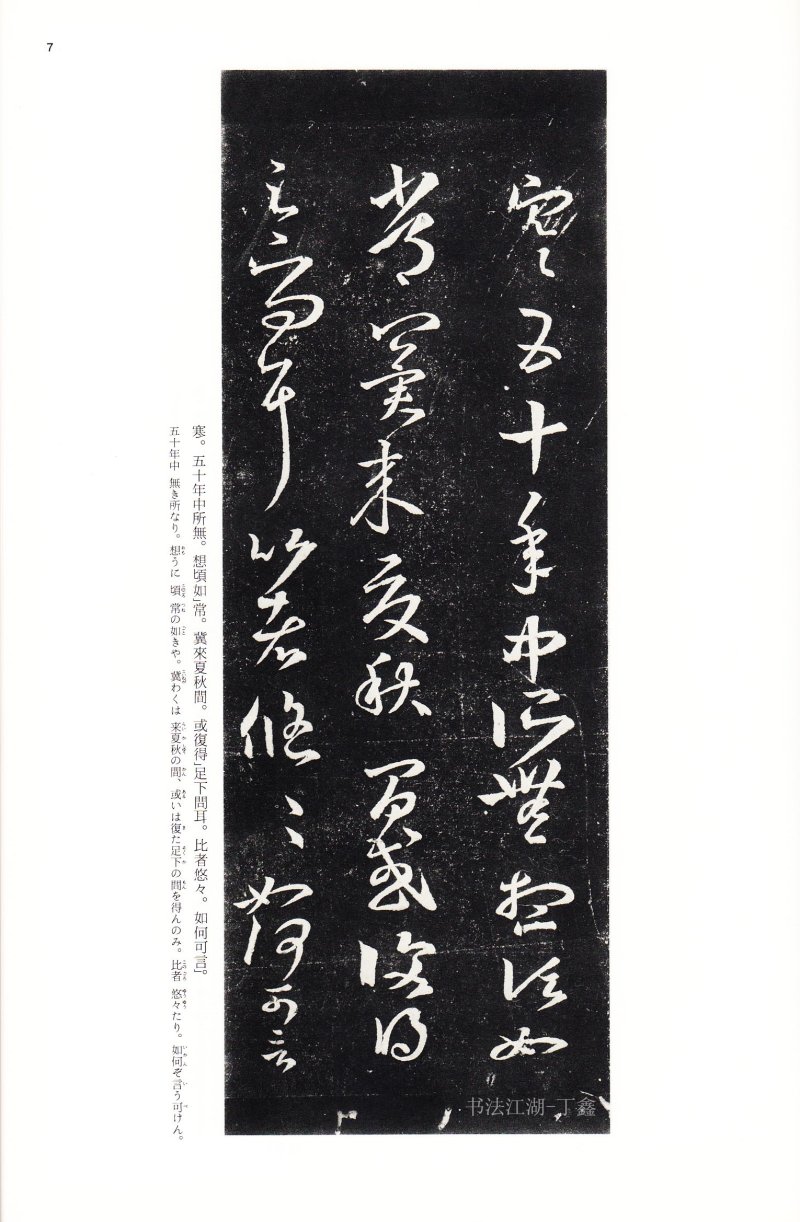 7
寒〻五十年中所無想頃如
常冀来夏秋間或復得
足下問耳比者悠〻如何可言
寒。五十年中所無。想頃如」常。冀來夏秋間。或復得」足下問耳。比者悠々。如何可言」
五十年中 無き所なり。想うに 頃 常の如きや。冀わくは 来夏秋の間、或いは復た足下の問を得んのみ。比者 悠々たり。如何ぞ言う可けん。
书法江湖-丁鑫